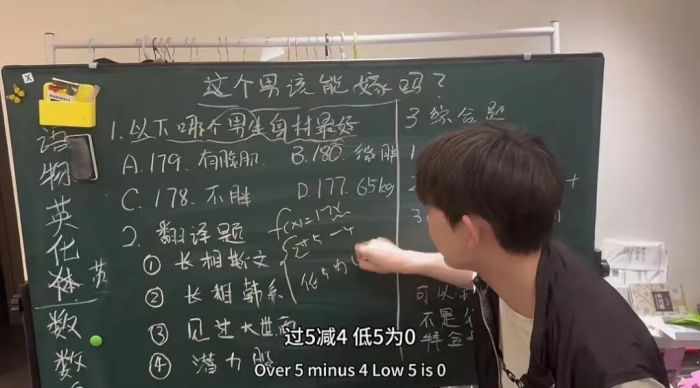 这个男孩能嫁吗？
语
物
英
化
体
英
数
数
1.以下哪个男生身材最好
A.179.有腹肌
B.180.微胖
C.178.不胖
D.177.65kg
2.翻译题
① 长相斯文
② 长相韩系
③ 见过大世面
④ 潜力股
f(x)=17x
过5-4
低5为
3综合题
1
2
3
可以
不是
特金
过5减4 低5为0
Over 5 minus 4 Low 5 is 0